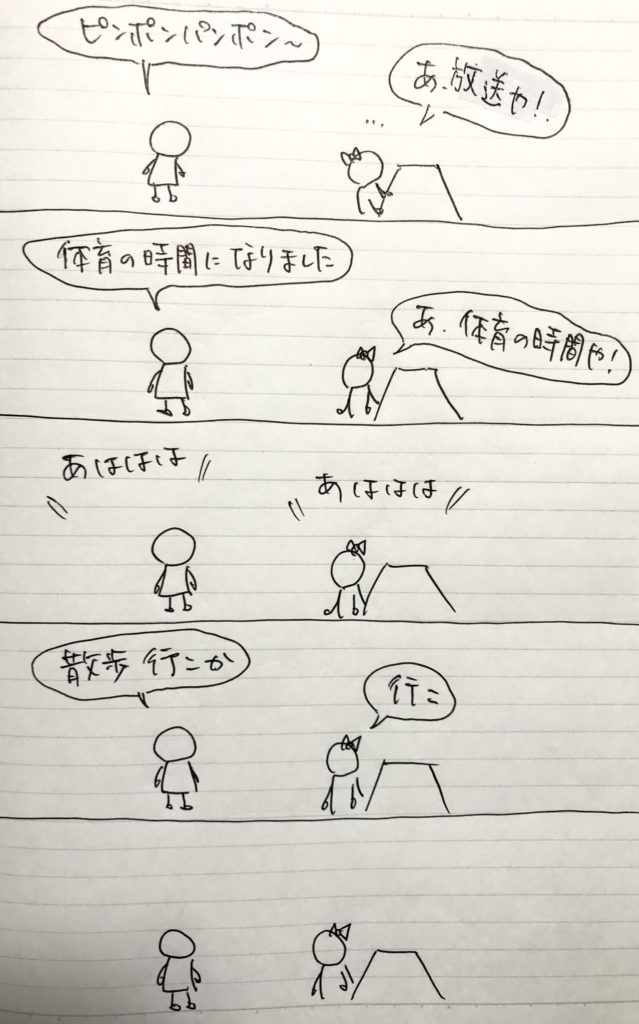 ピンポンパンポン〜
あ、放送や!
...
体育の時間になりました
あ、体育の時間や!
あははは
あははは
散歩 行こか
行こ